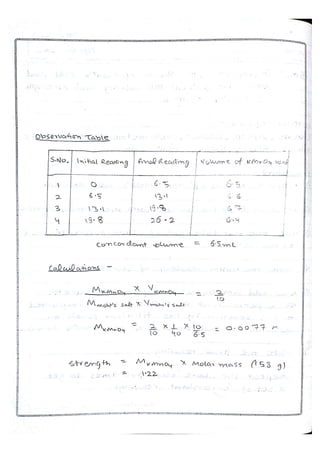 Observation Table
S.No. Initial Reading Final Reading Volume of KMnO4 used
1 0 6.5 6.5
2 6.5 13.1 6.6
3. 13.1 19.8 6.7
4 19.8 26.2 6.4
Concordant volume = 6.5mL
Calculations -
MKMnO4 x VKMnO4 = 2
Mmohr's salt x Vmohr's salt 10
MKMnO4 = 2 x 1 x 10 = 0.0077 M
10 40 6.5
Strength = MKMnO4 x Molar mass (158 g)
= 1.22